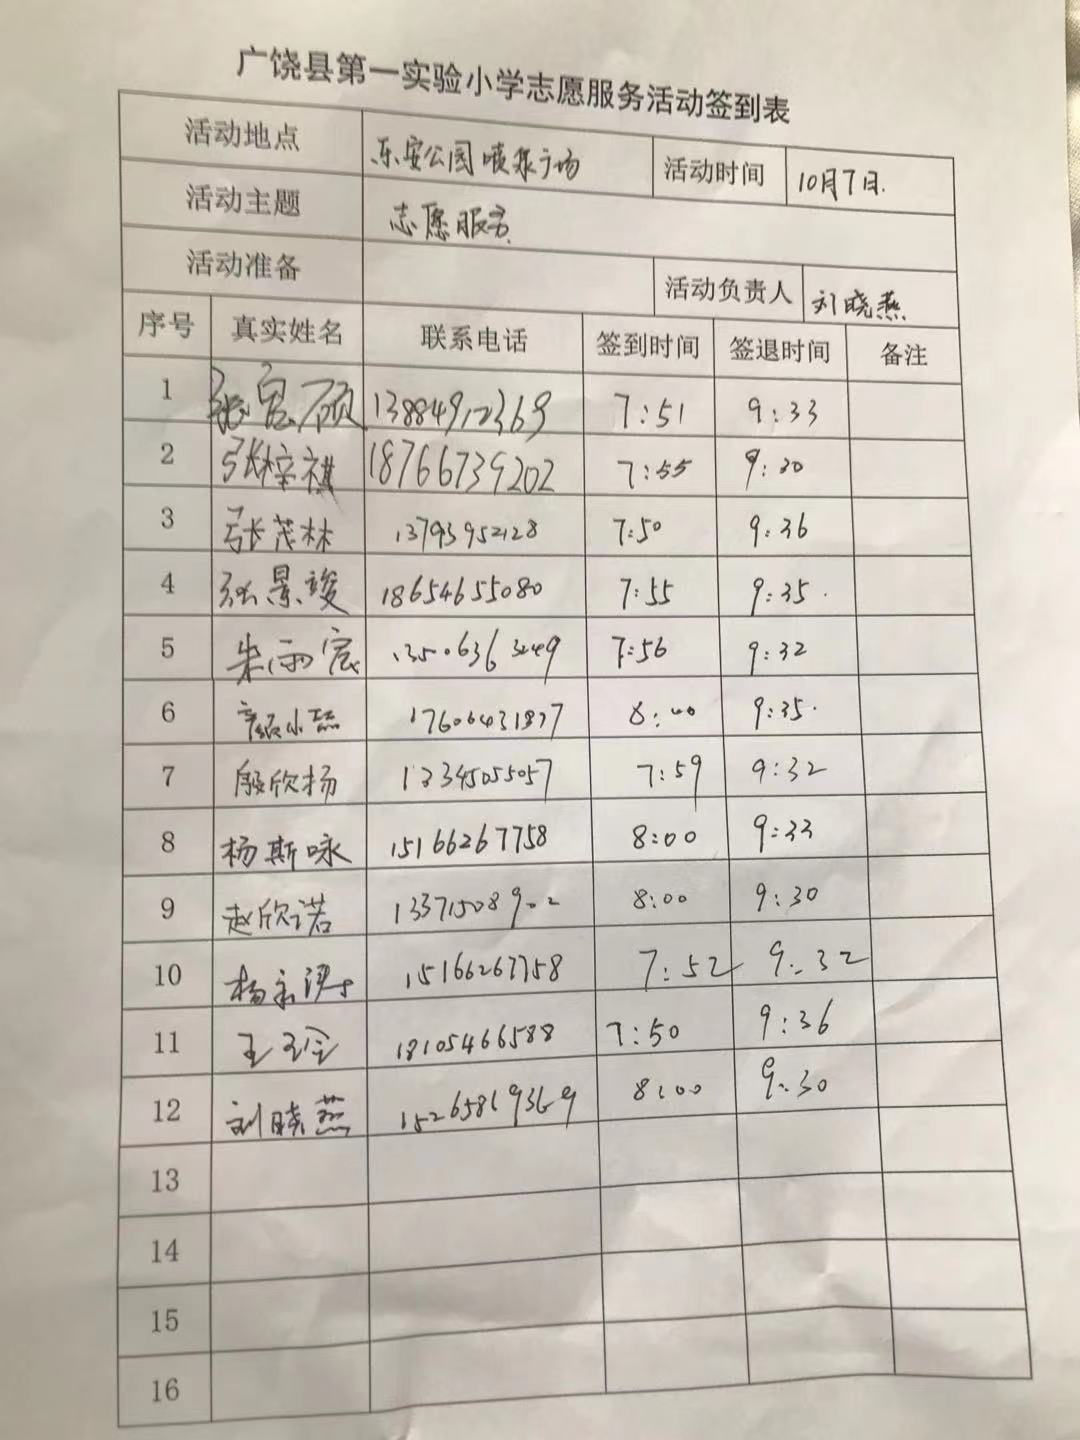 广饶县第一实验小学志愿服务活动签到表
活动地点 乐安公园喷泉广场 活动时间 10月7日.
活动主题 志愿服务
活动准备 活动负责人 刘晓燕
序号 真实姓名 联系电话 签到时间 签退时间 备注
1 13884912369 7:51 9:33
2 张梓祺 18766739202 7:55 9:30
3 张茂林 13793952128 7:50 9:36
4 张景竣 18654655080 7:55 9:35.
5 朱雨宸 13506363249 7:56 9:32
6 17606431837 8:00 9:35.
7 殷欣扬 7:59 9:32
8 杨斯咏 15166267758 8:00 9:33
9 赵欣诺 13371508902 8:00 9:30
10 15166267758 7:52 9:32
11 18105466588 7:50 9:36
12 刘晓燕 15265819369 8:00 9:30
13
14
15
16